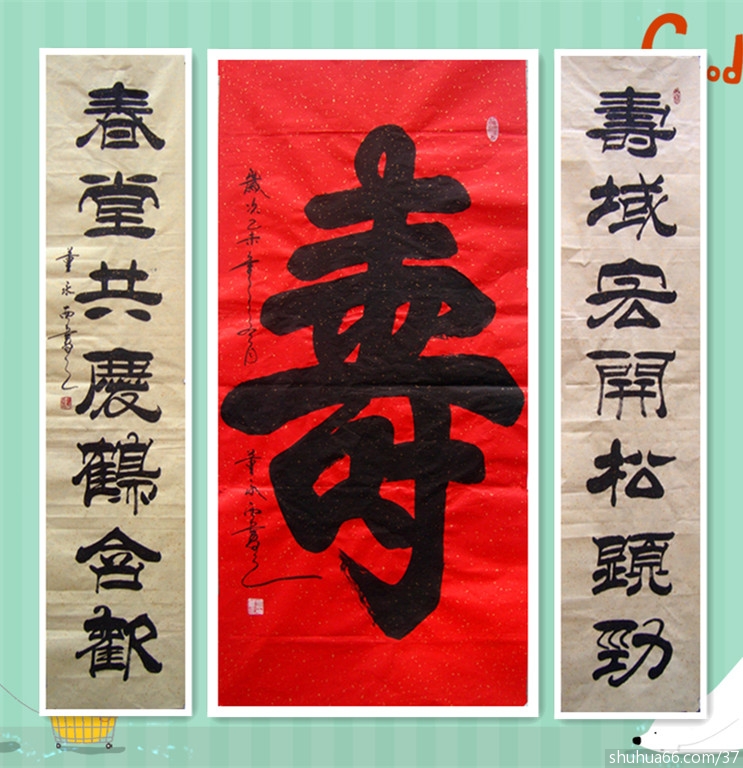 壽域宏開松顕勁
壽
歲次乙未年
董永西書之
春堂共慶鶴含歡
董永西書之
shuhua66.com/37